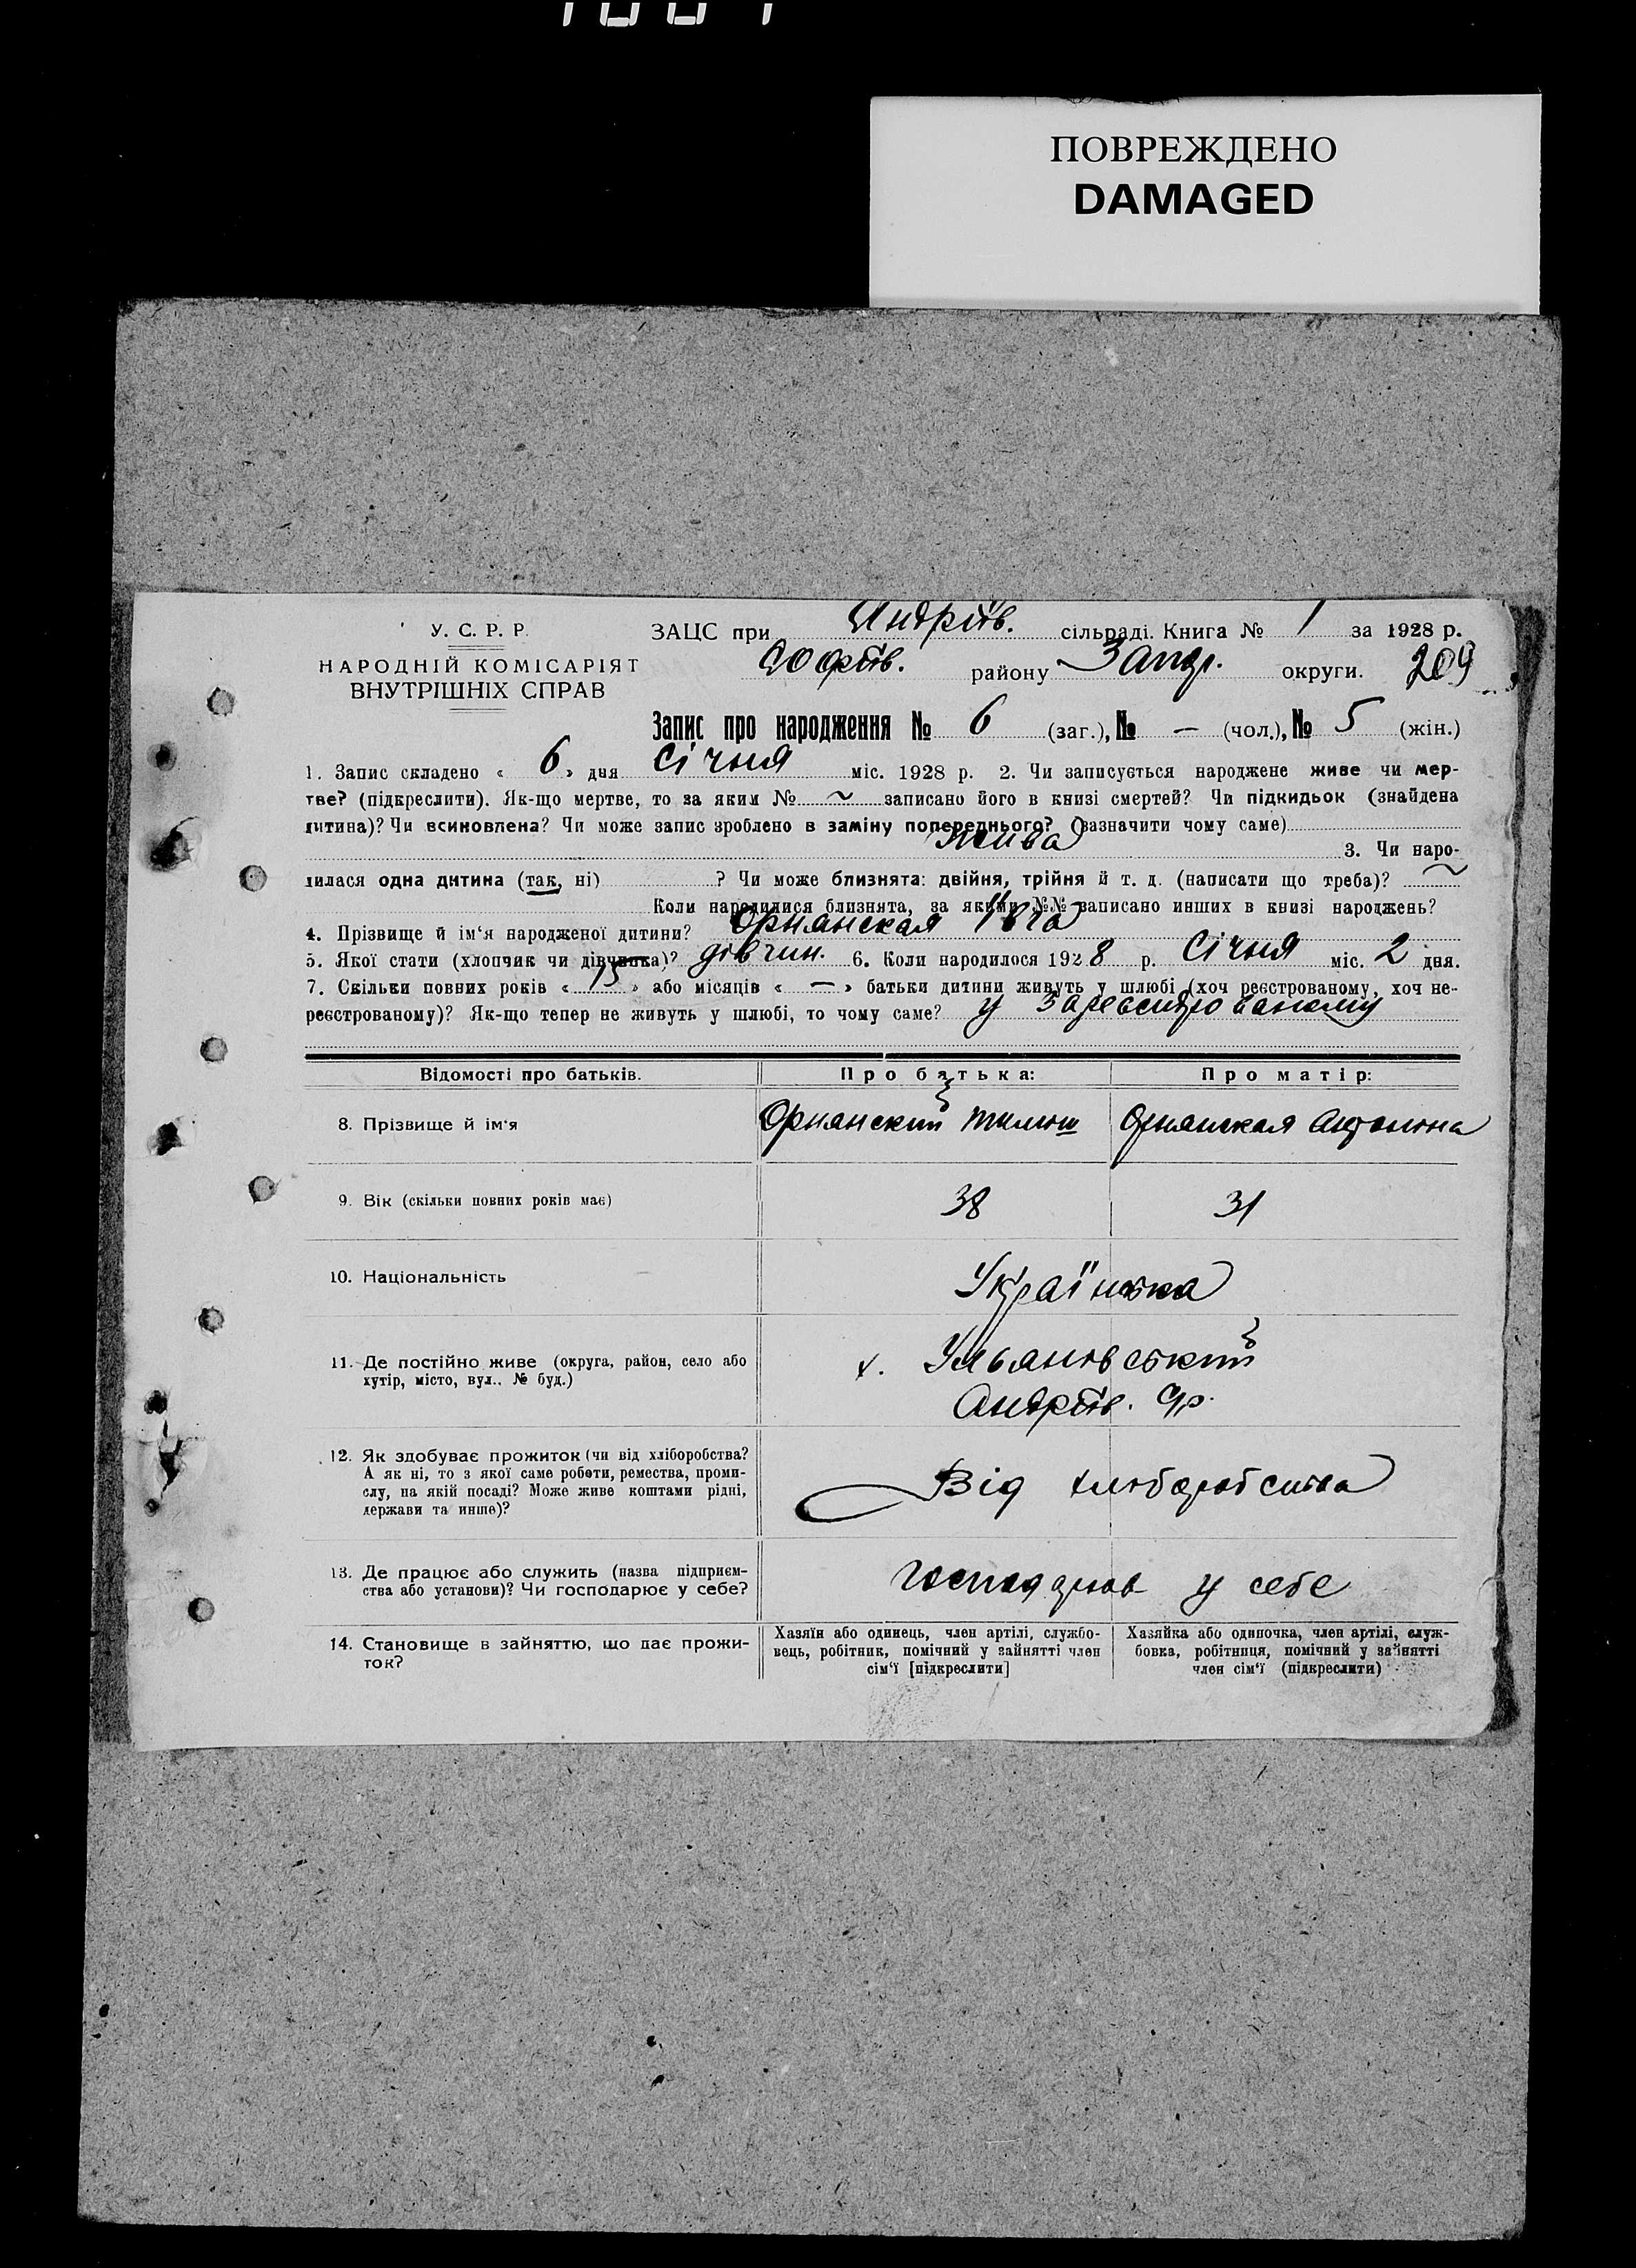 ПОВРЕЖДЕНО
DAMAGED
У. С. Р. Р.
НАРОДНІЙ КОМІСАРІЯТ
ВНУТРІШНІХ СПРАВ
ЗАЦС при Андріїв. сільраді. Книга № 1 за 1928 р.
Софіїв. району Запор. округи. 209
Запис про народження № 6 (заг.), № — (чол.), № 5 (жін.)
1. Запис складено « 6 » дня Січня міс. 1928 р. 2. Чи записується народжене живе чи мер-
тве? (підкреслити). Як-що мертве, то за яким № ~ записано його в книзі смертей? Чи підкидьок (знайдена
дитина)? Чи всиновлена? Чи може запис зроблено в заміну попереднього? (зазначити чому саме)
Жива 3. Чи наро-
дилася одна дитина (так, ні) ? Чи може близнята: двійня, трійня й т. д. (написати що треба)? ~
Коли народилися близнята, за якими №№ записано инших в книзі народжень?
4. Прізвище й ім'я народженої дитини? Орнянская
5. Якої стати (хлопчик чи дівчинка)? дівчин. 6. Коли народилося 1928 р. Січня міс. 2 дня.
7. Скільки повних років « 15 » або місяців « — » батьки дитини живуть у шлюбі (хоч реєстрованому, хоч не-
реєстрованому)? Як-що тепер не живуть у шлюбі, то чому саме? у
Відомості про батьків. Про батька: Про матір:
8. Прізвище й ім'я Орнянский Орнянская Антонина
9. Вік (скільки повних років має) 38 31
10. Національність Українська
11. Де постійно живе (округа, район, село або
хутір, місто, вул., № буд.) х. Ульяновський
Андріїв. С/р.
12. Як здобуває прожиток (чи від хліборобства?
А як ні, то з якої саме роботи, ремества, проми-
слу, на якій посаді? Може живе коштами рідні,
держави та инше)? Від хліборобства
13. Де працює або служить (назва підприєм-
ства або установи)? Чи господарює у себе? у себе
14. Становище в зайняттю, що дає прожи-
ток?
Хазяїн або одинець, член артілі, службо-
вець, робітник, помічний у зайнятті член
сім'ї [підкреслити]
Хазяйка або одиночка, член артілі, служ-
бовка, робітниця, помічний у зайнятті
член сім'ї (підкреслити)